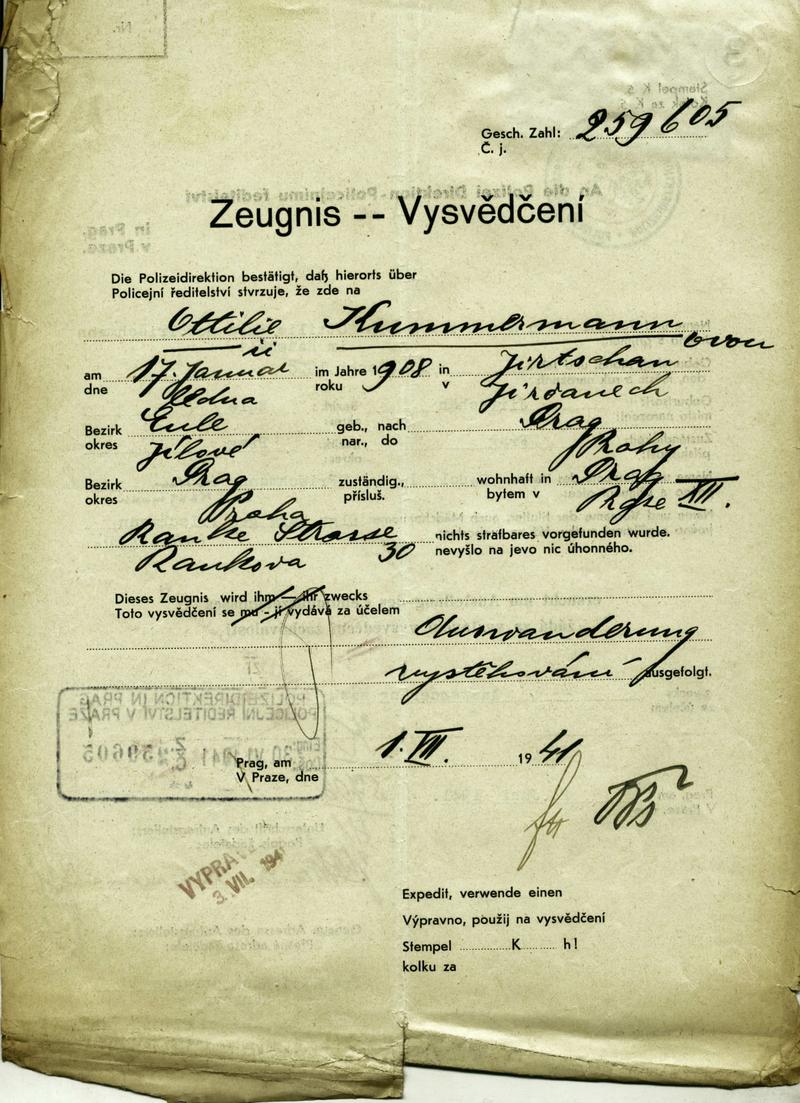 Gesch. Zahl: 259605
Č. j.
Zeugnis -- Vysvědčení
Die Polizeidirektion bestätigt, daß hierorts über
Policejní ředitelství stvrzuje, že zde na
Ottilie Kummermann
ii ovou
am 17. Januar im Jahre 1908 in Jirtschan
dne ledna roku v Jirčanech
Bezirk Eule geb., nach Prag
okres Jílové nar., do Prahy
Bezirk Prag zuständig., wohnhaft in Prag
okres Praha přísluš. bytem v Praze XII.
Ranke Strasse nichts strafbares vorgefunden wurde.
Rankova 30 nevyšlo na jevo nic úhonného.
Dieses Zeugnis wird ihm — ihr zwecks
Toto vysvědčení se mu - jí vydává za účelem
Auswanderung
vystěhování ausgefolgt.
POLIZEIDIREKTION IN PRAG
POLICEJNÍ ŘEDITELSTVÍ V PRAZE
30 VI 1941 259605
Prag, am 1. VII. 1941
V Praze, dne
VYPRA
3. VII. 194
Expedit, verwende einen
Výpravno, použij na vysvědčení
Stempel K h!
kolku za